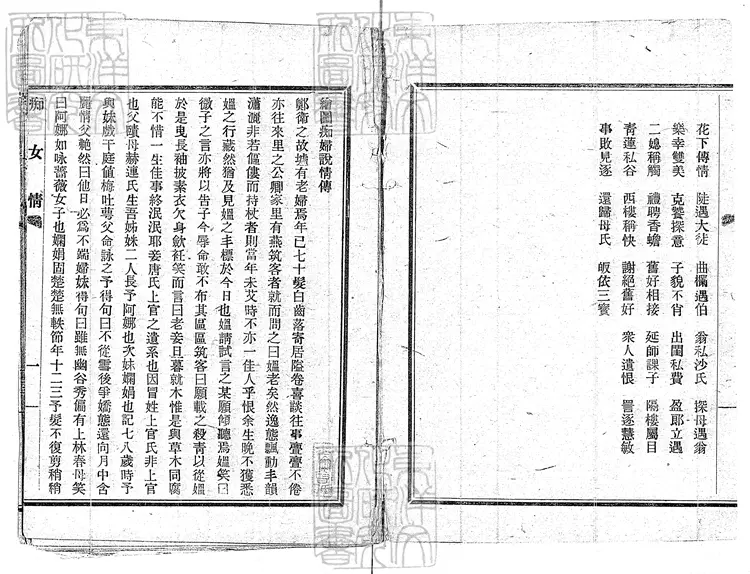 花下傳情 陡遇大徒 曲欄遇伯 翁私沙氏 探母遇翁
樂幸雙美 克饕探意 子貌不肖 出閨私費 盈郎立遇
二媳稱觴 禮聘香蟾 舊好相接 延師課子 隔樓屬目
青蓮私谷 西樓稱快 謝絕舊好 衆人遺恨 詈逐慧敏
事敗見逐 還歸母氏 皈依三寳
繪圖痴婦說情傳
鄭衛之故墟有老婦焉年已七十髮白齒落寄居隘巷喜談往事亹亹不倦
亦往來里之公卿家里有燕筑客者就而問之曰媼老矣然逸態飄動丰韻
瀟灑非若傴僂而持杖者則當年未艾時不亦一佳人乎恨余生晚不獲悉
媼之行藏然猶及見媼之丰標於今日也媼請試言之某願傾聽焉媼笑曰
微子之言亦將以告子今辱命敢不布其區區筑客曰願載之殺青以從媼
於是曳長袖披素衣欠身歛衽笑而言曰老妾旦暮就木惟是與草木同腐
能不惜一生佳事終泯泯耶妾唐氏上官之遺系也因冒姓上官氏非上官
也父賾母赫連氏生吾姊妹二人長予阿娜也次妹嫻娟也記七八歲時予
與妹戲于庭値梅吐蕚父命詠之予得句曰不從雪後爭嬌態還向月中含
麗情父艴然曰他日必爲不端婦妹得句曰雖無幽谷秀偏有上林春母笑
曰阿娜如咏薔薇女子也嫻娟固楚楚無軼節年十二三予髮不復剪稍稍
痴
女
情
一